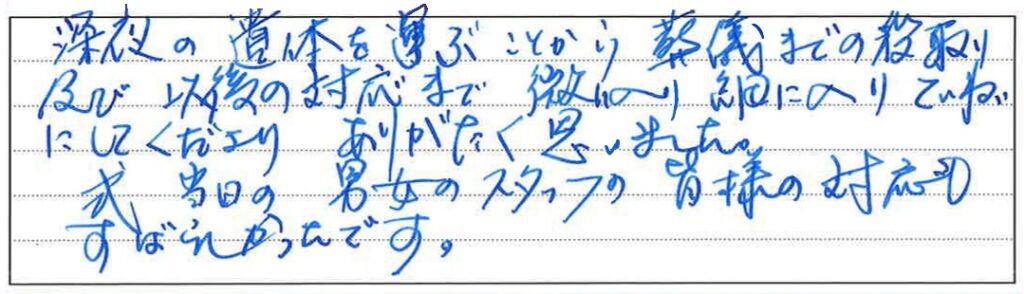 深夜の遺体を運ぶことから葬儀までの段取り
及び以後の対応まで微に入り細に入りていねい
にしてくださり ありがたく思いました。
式当日の男女のスタッフの皆様の対応も
すばらしかったです。